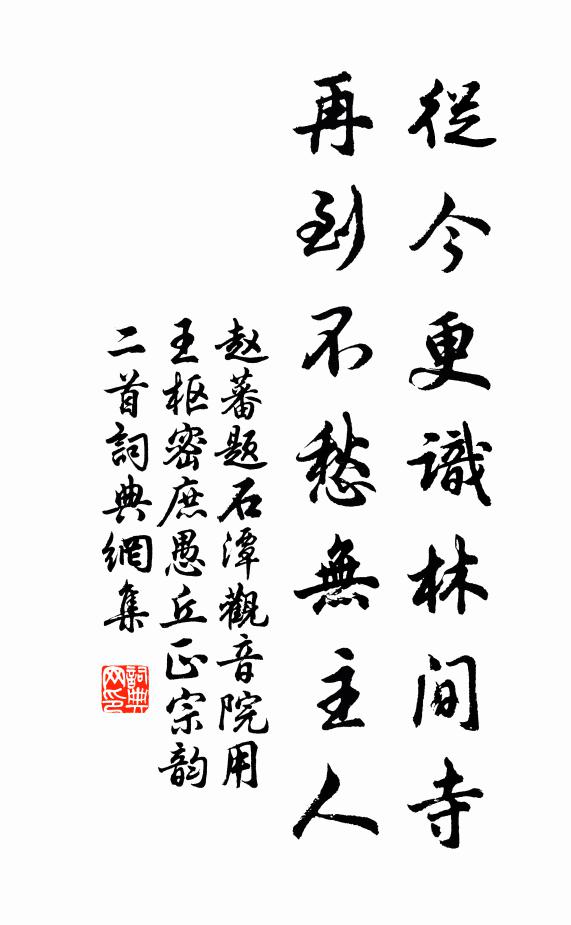 從今更識林間寺
再到不愁無主人
赵蕃题石潭觀音院用
王枢密庶愚丘正宗韵
二首詞典網集
詞典网印